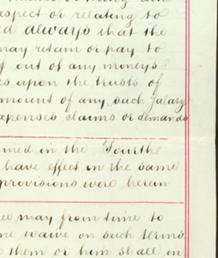 respect or relating to
ed always that the
may retain or pay to
f out of any moneys
es upon the trusts of
amount of any such Salary
expenses claims or demands
med in the Fourth
have effect in the same
provisions were herein
may from time to
me waive on such terms
them or him shall in